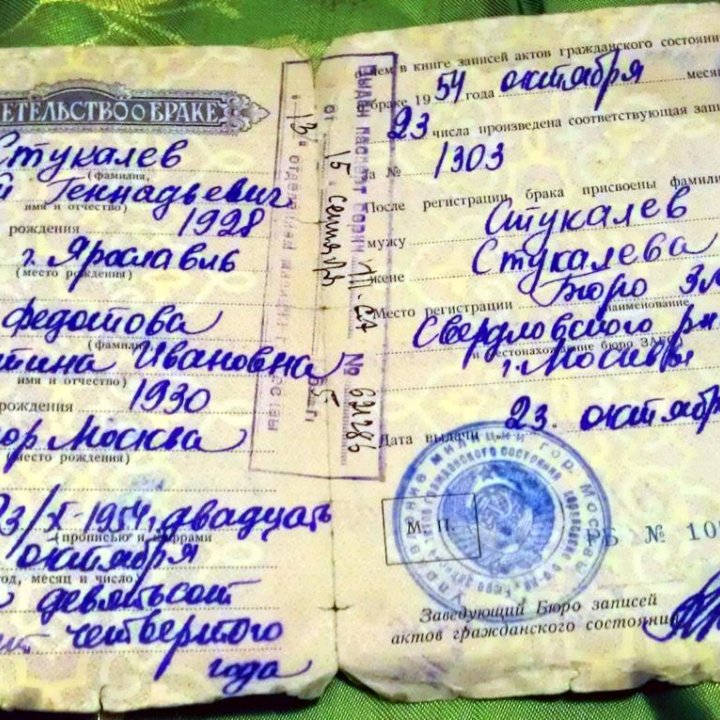 ЕТЕЛЬСТВО О БРАКЕ
Стукалев
(фамилия,
й Геннадьевич
имя и отчество)
рождения 1928
г. Ярославль
(место рождения)
федотова
(фамилия
тина Ивановна
имя и отчество)
рождения 1930
гор. Москва
(место рождения)
23/X-1954, двадцать
(прописью и цифрами
октября
год, месяц и число)
девятьсот
четвертого
года
о чем в книге записей актов гражданского состояни
браке 1954 года октября месяц
23 числа произведена соответствующая запи
за № 1303
После регистрации брака присвоены фамили
мужу Стукалев
жене Стукалева
Место регистрации Бюро ЗА
наименование
Свердловского р-н
местонахождение бюро ЗАГС
г. Москвы
Дата выдачи 23. октябр
М. П.
РБ № 10
Заведующий Бюро записей
актов гражданского состояни
Выдан паспорт серии III-СА № 631286
от 15 сентября 5 г.
13 отделения милиции г.